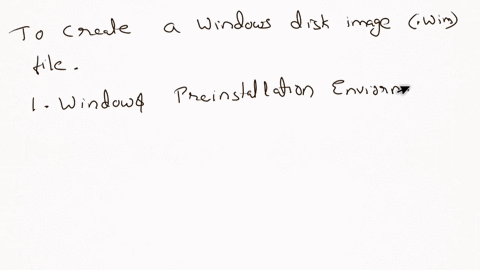 To create a windows disk image (.wim)
file.
1. Windows Preinstallation Enviorn